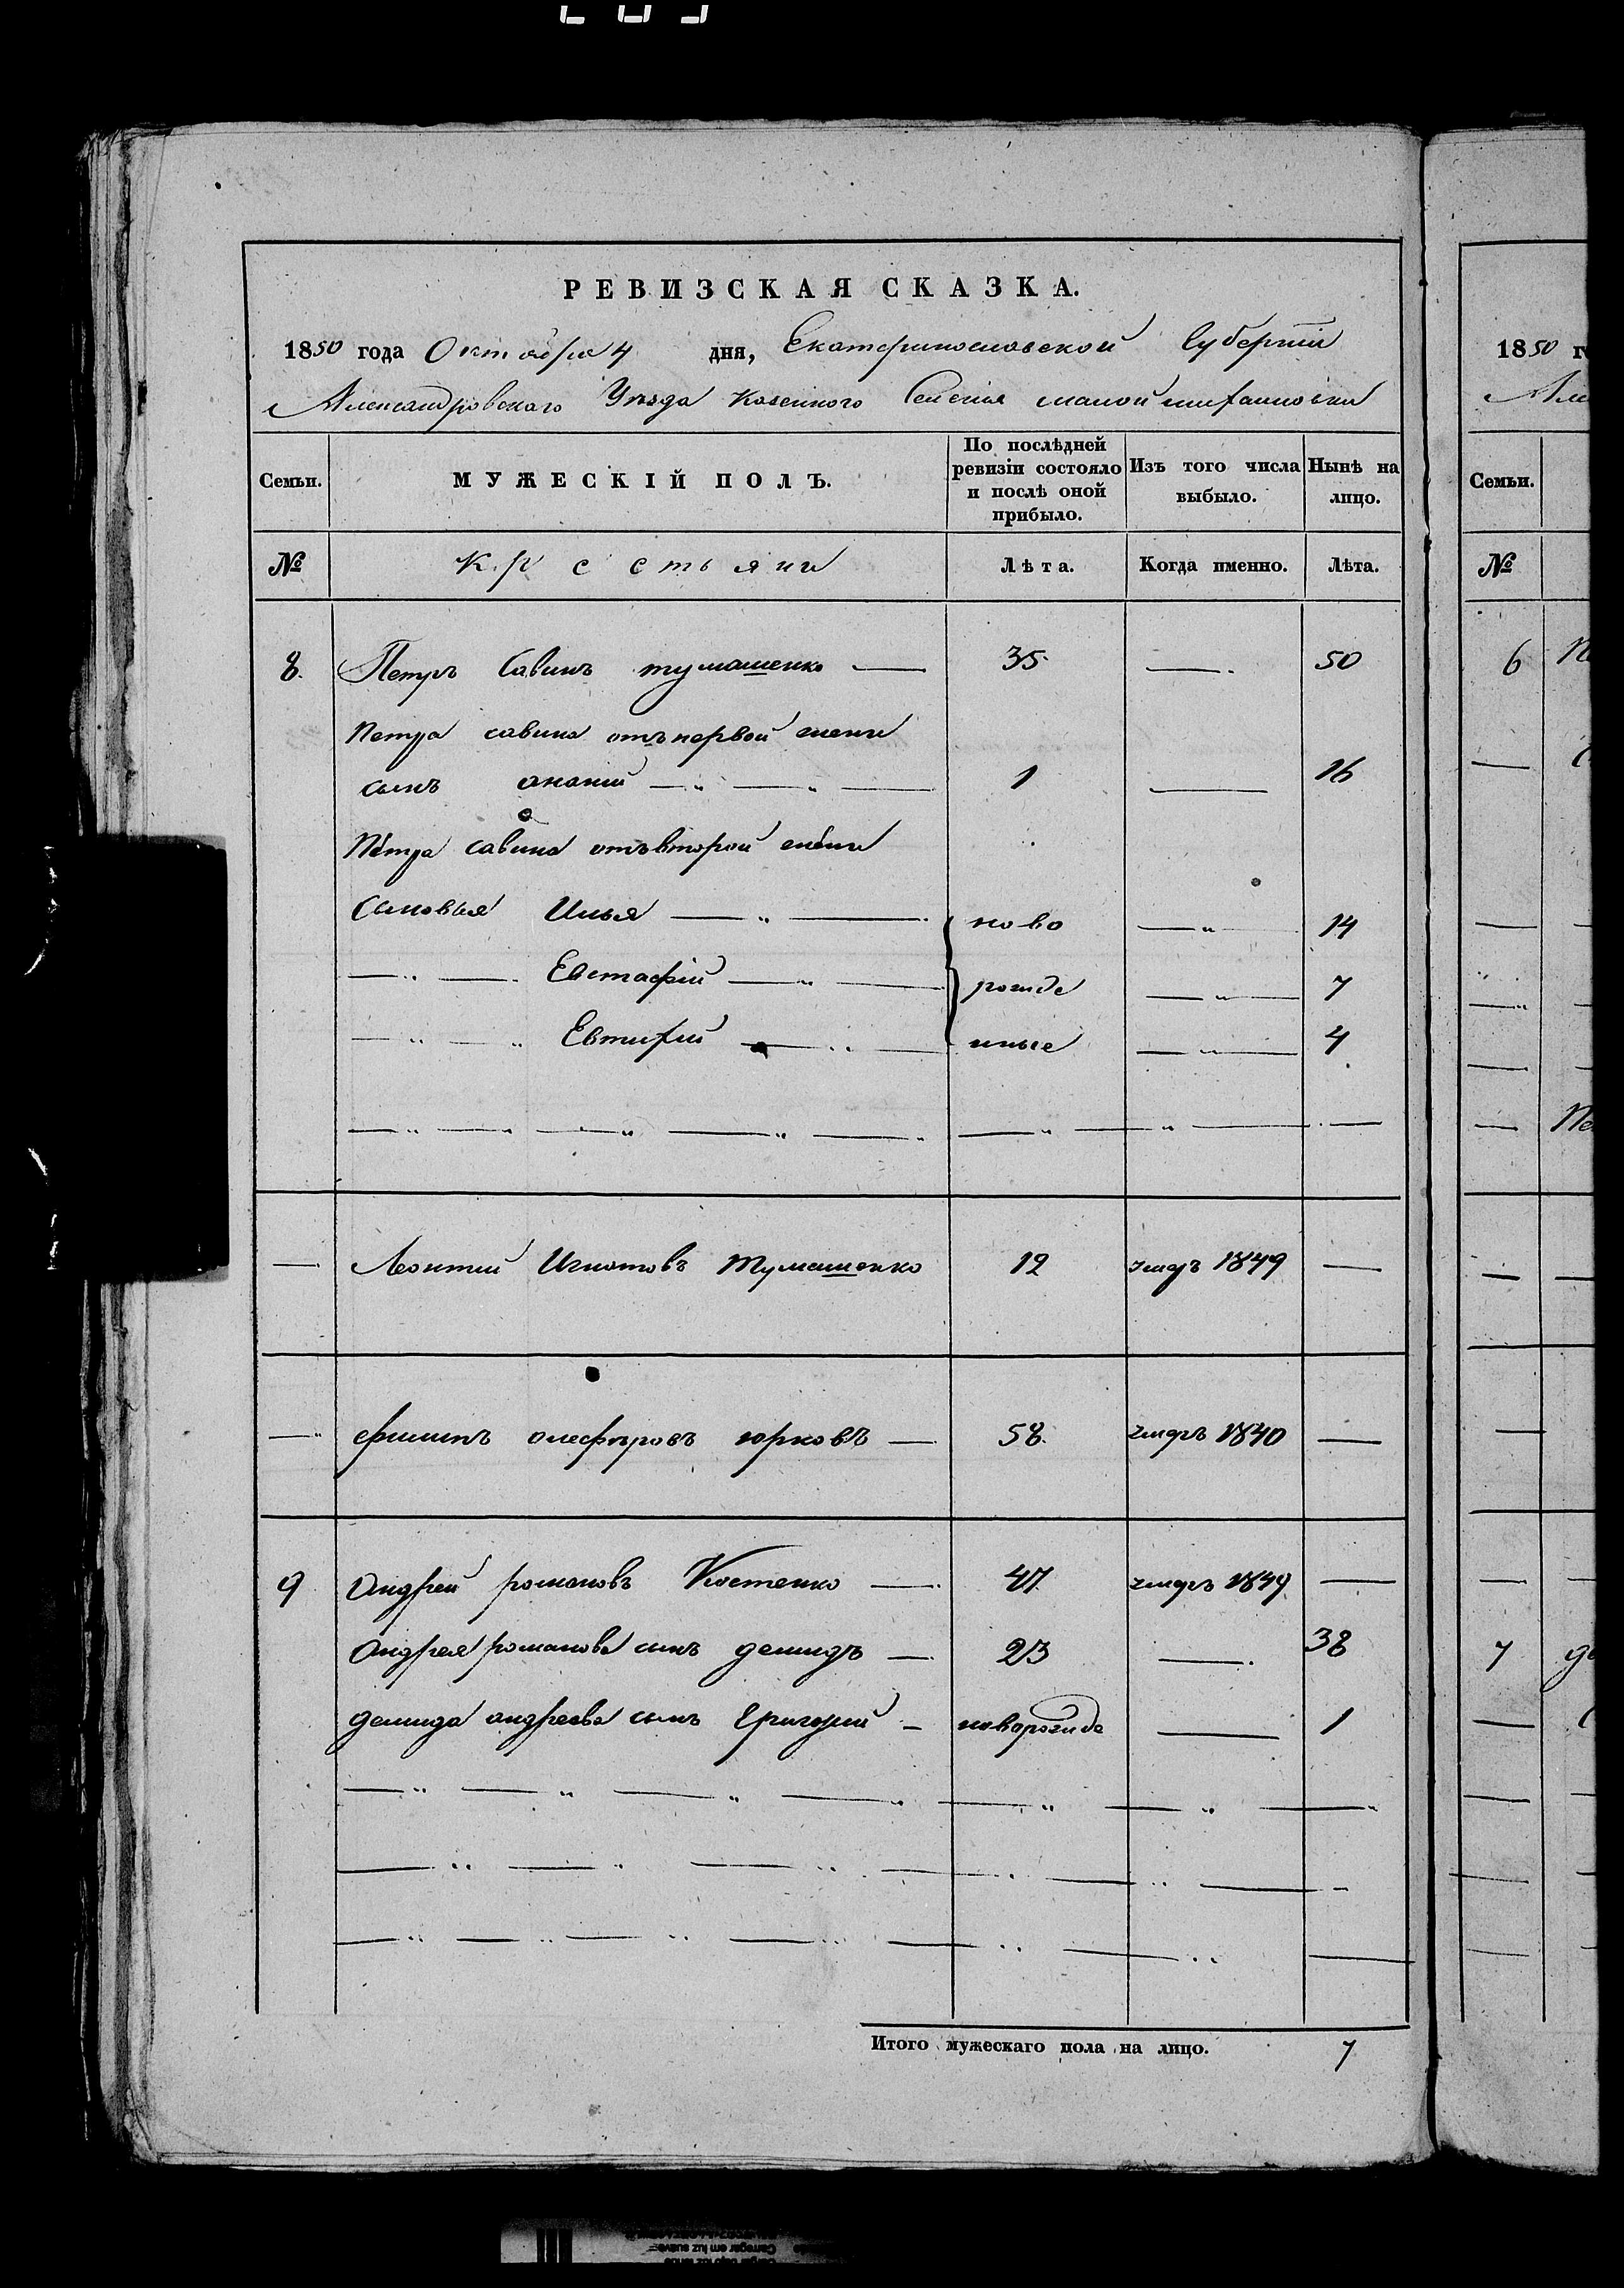 РЕВИЗСКАЯ СКАЗКА.
1850 года Октября 4 дня, Екатеринославской Губерніи
Александровского Уезда Казенного Селенія малой михайловки
Семьи. МУЖЕСКІЙ ПОЛЪ. По послѣдней ревизіи состояло и послѣ оной прибыло. Изъ того числа выбыло. Нынѣ на лицо.
№ крестьяни Лѣта. Когда именно. Лѣта.
8. Петръ Савинъ тумашенко — 35 — 50
Петра савина отъ первой жени
сынъ ананий — 1 — 16
Петра савина отъ второй жени
Сыновья Илья — ново — 14
— Евстафій — рожде — 7
— Евтихий — нные — 4
— Леонтий Игнатовъ Тумашенко 12 умеръ 1849 —
— филипъ олефировъ юрковъ — 58. умеръ 1840 —
9 Андрей романовъ Костенко — 47 умеръ 1849 —
Андрея романова сынъ демидъ — 23 — 38
демида андреева сынъ Григорий — новорожде — 1
Итого мужескаго пола на лицо. 7
1850 г
Але
Семьи.
№
6
7 де